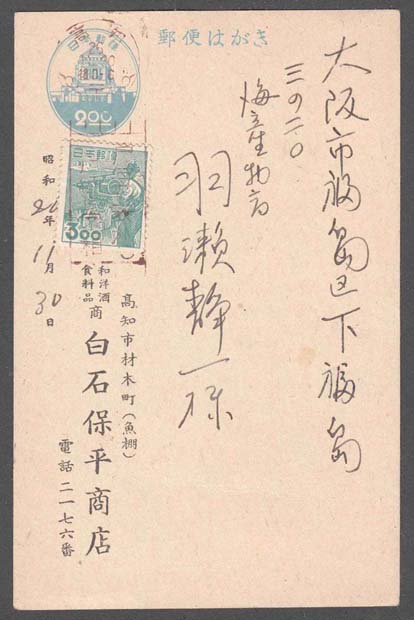 郵便はがき
日本郵便
2.00
日本郵便
3.00
大阪市福島区下福島
三の二〇
海産物商
羽瀬静一様
昭和26年11月30日
和洋酒
食料品
商
高知市材木町(魚棚)
白石保平商店
電話二一七六番